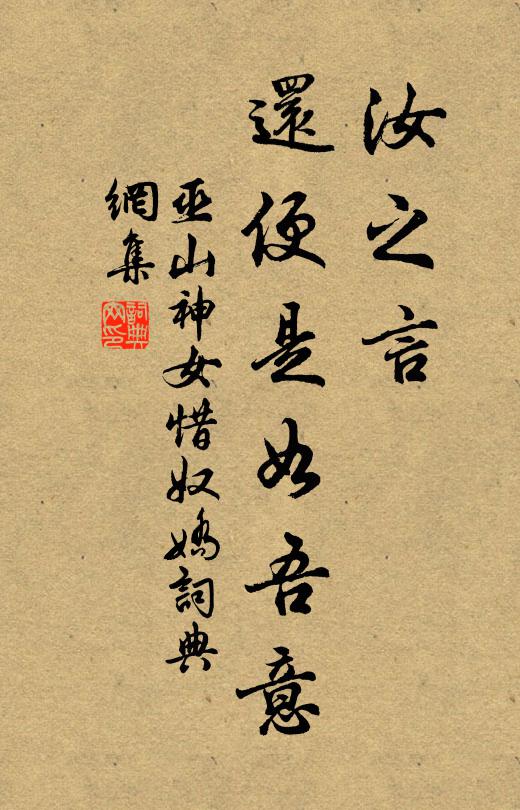 汝之言
還便是如吾意
巫山神女惜奴嬌詞典
網集
詞典
網印